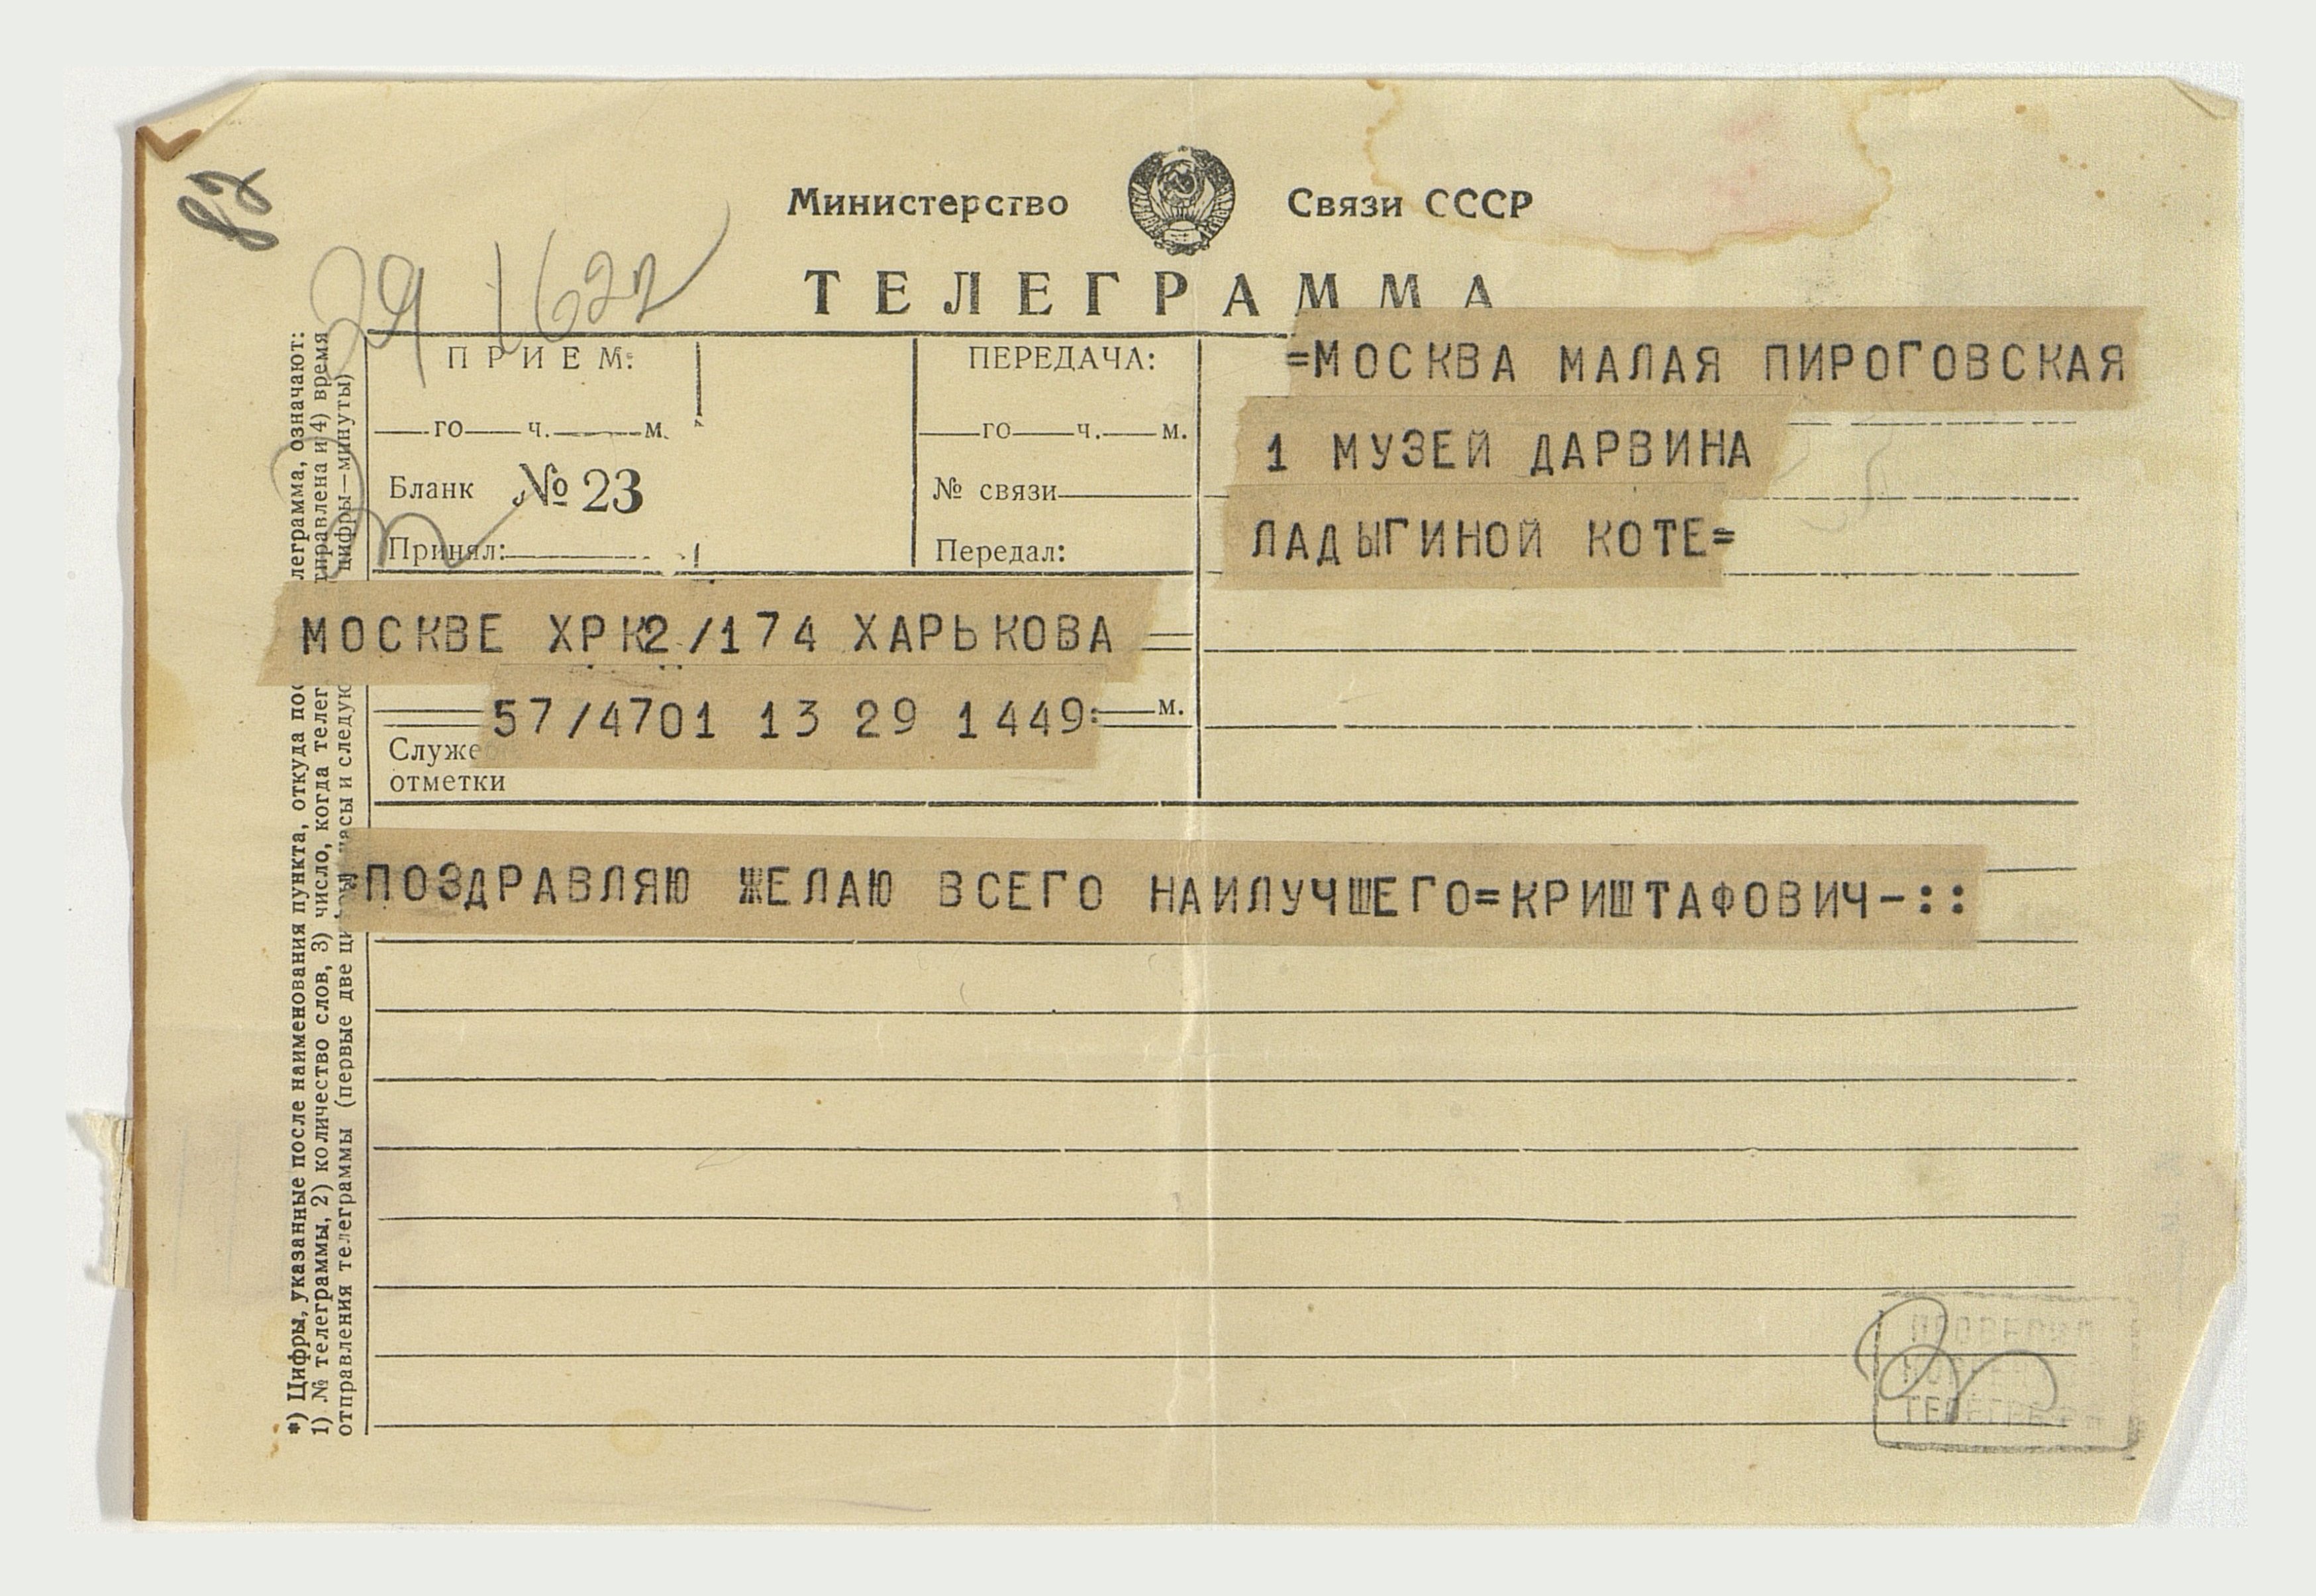 82
29 1622
Министерство Связи СССР
ТЕЛЕГРАММА
ПРИЕМ:
го ч. м.
Бланк № 23
Принял:
ПЕРЕДАЧА:
го ч. м.
№ связи
Передал:
=МОСКВА МАЛАЯ ПИРОГОВСКАЯ
1 МУЗЕЙ ДАРВИНА
ЛАДЫГИНОЙ КОТЕ=
МОСКВЕ ХРК2/174 ХАРЬКОВА
57/4701 13 29 1449= м.
Служе
отметки
=ПОЗДРАВЛЯЮ ЖЕЛАЮ ВСЕГО НАИЛУЧШЕГО=КРИШТАФОВИЧ-::
*) Цифры, указанные после наименования пункта, откуда пос леграмма, означают:
1) № телеграммы, 2) количество слов, 3) число, когда телег правлена и 4) время
отправления телеграммы (первые две ци часы и следую цифры—минуты)
ПРОВЕРЕНО
ТЕЛЕГРАФ